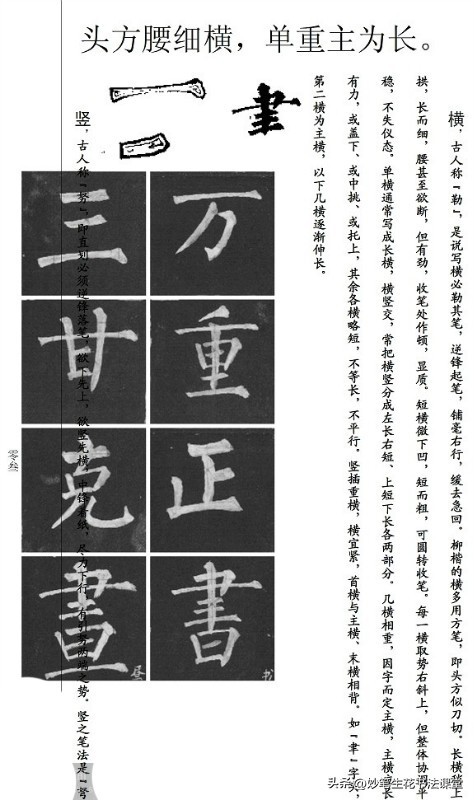 头方腰细横，单重主为长。
書
横，古人称『勒』，是说写横必勒其笔，逆锋起笔，铺毫右行，缓去急回。柳楷的横多用方笔，即头方似刀切。长横稍上
拱，长而细，腰甚至欲断，但有劲，收笔处作顿，显质。短横微下凹，短而粗，可圆转收笔。每一横取势右斜上，但整体协调平
稳，不失仪态，单横通常写成长横，横竖交，常把横竖分成左长右短、上短下长各两部分。几横相重，因字而定主横，主横长
有力，或盖下、或中挑、或托上，其余各横略短，不等长，不平行。竖插重横，横宜紧，首横与主横、末横相背。如『聿』字头，
第二横为主横，以下几横逐渐伸长。
万
重
正
書
书
三
廿
克
晝
昼
竖，古人称『努』，即直划必须逆锋落笔，欲下先上，欲竖先横，中锋着纸，尽力下行，有引弩两端之势。竖之笔法是『弩
零叁
头条@妙笔生花书法课堂